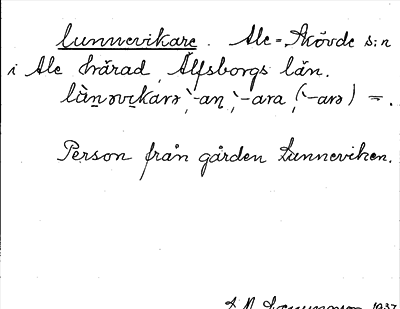 lunnevikare. Ale-Skövde s:n
i Ale härad, Älfsborgs län.
lùn̠əvi̠karə, -an̠, -ara (-arə) =.
Person från gården Lunneviken.
1937